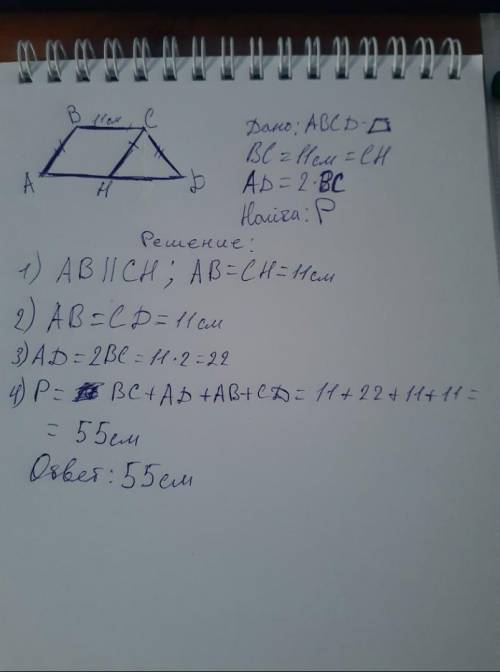 B 11см C
A H D
Дано: ABCD-
BC = 11см = CH
AD = 2·BC
P
Решение:
1) AB || CH ; AB = CH = 11см
2) AB = CD = 11см
3) AD = 2BC = 11·2 = 22
4) P = BC + AD + AB + CD = 11 + 22 + 11 + 11 =
= 55см
Ответ: 55см